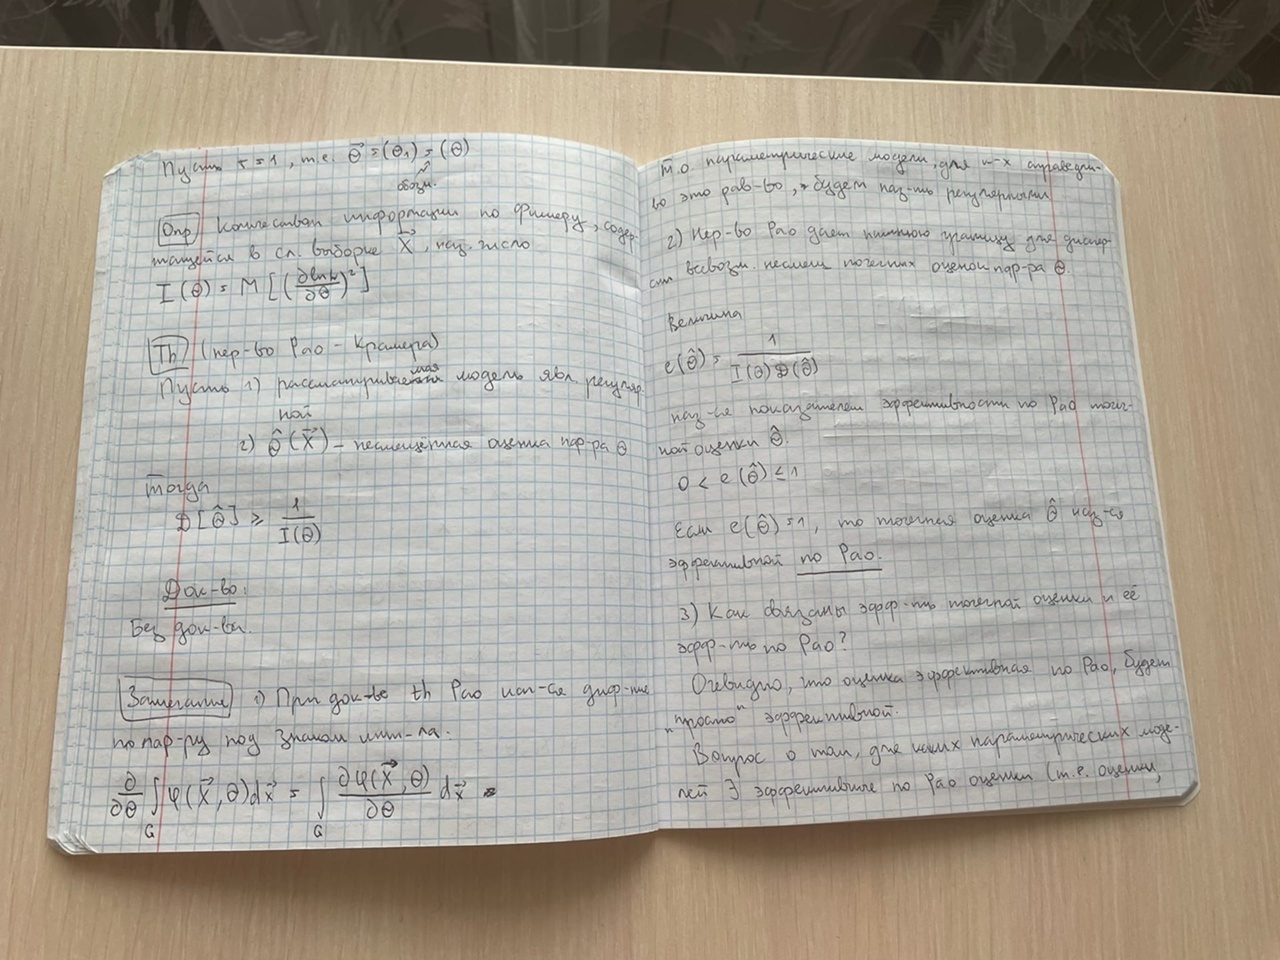 Пусть r = 1, т.е. θ⃗ = (θ₁) = (θ)
обозн.
Опр Количеством информации по Фишеру, содер-
жащейся в сл. выборке X⃗, наз. число
I(θ) = M[(∂lnL/∂θ)²]
Th (нер-во Рао - Крамера)
Пусть 1) рассматриваемая модель явл. регуляр-
ной
2) θ̂(X⃗) - несмещенная оценка пар-ра θ
Тогда
D[θ̂] ≥ 1/I(θ)
Док-во:
Без док-ва.
Замечание 1) При док-ве th Рао исп-ся диф-ние
по пар-ру под знаком инт-ла.
∂/∂θ ∫_G φ(X⃗, θ)dx⃗ = ∫_G ∂φ(X⃗, θ)/∂θ dx⃗
Т.о параметрические модели, для к-х справедли-
во это рав-во, будем наз-ть регулярными
2) Нер-во Рао дает нижнюю границу для диспер-
сии всевозм. несмещ точечных оценок пар-ра θ.
Величина
e(θ̂) = 1/(I(θ) D(θ̂))
наз-ся показателем эффективности по Рао точеч-
ной оценки θ̂.
0 < e(θ̂) ≤ 1
Если e(θ̂) = 1, то точечная оценка θ̂ наз-ся
эффективной по Рао.
3) Как связаны эфф-ть точечной оценки и её
эфф-ть по Рао?
Очевидно, что оценка эффективная по Рао, будет
"просто" эффективной.
Вопрос о том, для каких параметрических моде-
лей ∃ эффективные по Рао оценки (т.е. оценки,